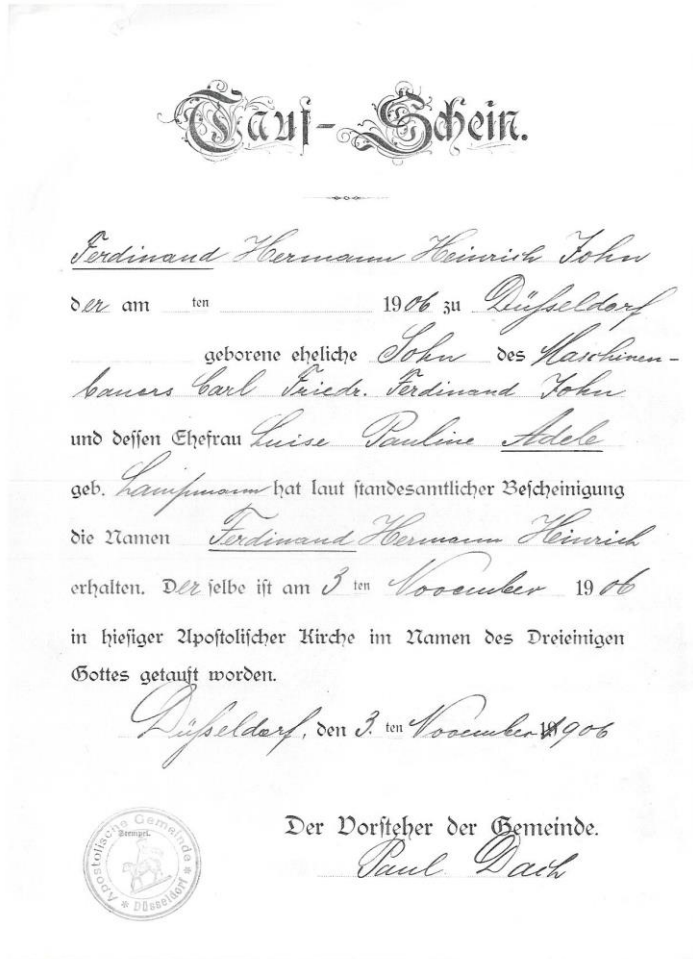 Tauf-Schein.
Ferdinand Hermann Heinrich John
der am ten 1906 zu Düsseldorf
geborene eheliche Sohn des Maschinen-
bauers Carl Friedr. Ferdinand John
und dessen Ehefrau Luise Pauline Adele
geb. Lampmann hat laut standesamtlicher Bescheinigung
die Namen Ferdinand Hermann Heinrich
erhalten. Derselbe ist am 3 ten November 1906
in hiesiger Apostolischer Kirche im Namen des Dreieinigen
Gottes getauft worden.
Düsseldorf, den 3. ten November 1906
Der Vorsteher der Gemeinde.
Paul Dach
Apostolische Gemeinde
Stempel.
* Düsseldorf *